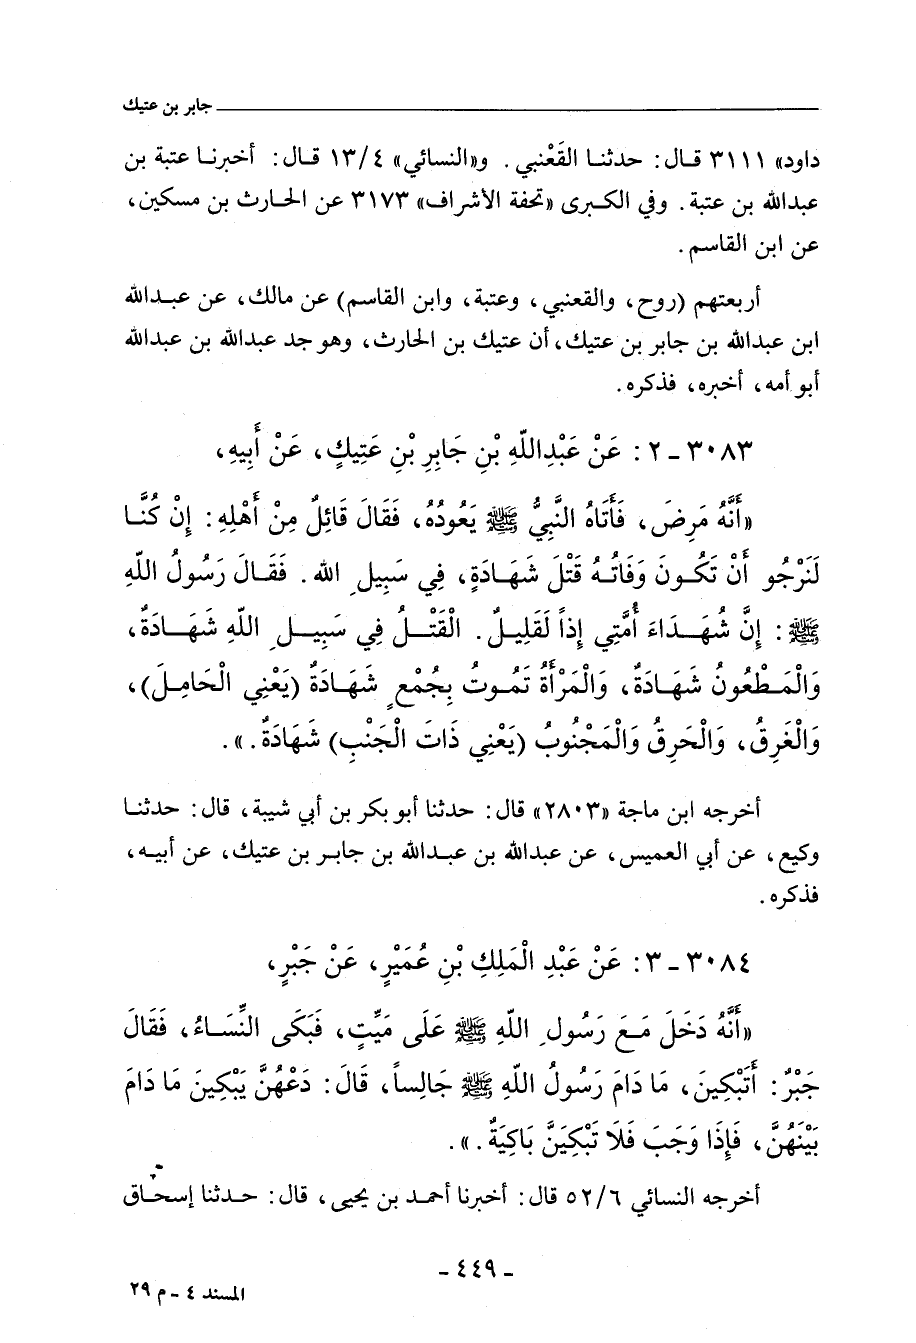 جابر بن عتيك
داود» ٣١١١ قال: حدثنا القَعْنبي. و«النسائي» ١٣/٤ قال: أخبرنا عتبة بن
عبدالله بن عتبة. وفي الكبرى «تحفة الأشراف» ٣١٧٣ عن الحارث بن مسكين،
عن ابن القاسم.
أربعتهم (روح، والقعنبي، وعتبة، وابن القاسم) عن مالك، عن عبدالله
ابن عبدالله بن جابر بن عتيك، أن عتيك بن الحارث، وهو جد عبدالله بن عبدالله
أبو أمه، أخبره، فذكره.
٣٠٨٣ - ٢: عَنْ عَبْدِاللّهِ بْنِ جَابِرِ بْنِ عَتِيكٍ، عَنْ أَبِيهِ،
«أَنَّهُ مَرِضَ، فَأَتَاهُ النَّبِيُّ ﷺ يَعُودُهُ، فَقَالَ قَائِلٌ مِنْ أَهْلِهِ: إِنْ كُنَّا
لَنَرْجُو أَنْ تَكُونَ وَفَاتُهُ قَتْلَ شَهَادَةٍ، فِي سَبِيلِ الله. فَقَالَ رَسُولُ اللّهِ
ﷺ: إِنَّ شُهَدَاءَ أُمَّتِي إِذاً لَقَلِيلٌ. الْقَتْلُ فِي سَبِيلِ اللّهِ شَهَادَةٌ،
وَالْمَطْعُونُ شَهَادَةٌ، وَالْمَرْأَةُ تَمُوتُ بِجُمْعٍ شَهَادَةٌ (يَعْنِي الْحَامِلَ)،
وَالْغَرِقُ، وَالْحَرِقُ وَالْمَجْنُوبُ (يَعْنِي ذَاتَ الْجَنْبِ) شَهَادَةٌ.».
أخرجه ابن ماجة «٢٨٠٣» قال: حدثنا أبو بكر بن أبي شيبة، قال: حدثنا
وكيع، عن أبي العميس، عن عبدالله بن عبدالله بن جابر بن عتيك، عن أبيه،
فذكره.
٣٠٨٤ - ٣: عَنْ عَبْدِ الْمَلِكِ بْنِ عُمَيْرٍ، عَنْ جَبْرٍ،
«أَنَّهُ دَخَلَ مَعَ رَسُولِ اللّهِ ﷺ عَلَى مَيِّتٍ، فَبَكَى النِّسَاءُ، فَقَالَ
جَبْرٌ: أَتَبْكِينَ، مَا دَامَ رَسُولُ اللّهِ ﷺ جَالِساً، قَالَ: دَعْهُنَّ يَبْكِينَ مَا دَامَ
بَيْنَهُنَّ، فَإِذَا وَجَبَ فَلَا تَبْكِيَنَّ بَاكِيَةٌ.».
أخرجه النسائي ٥٢/٦ قال: أخبرنا أحمد بن يحيى، قال: حدثنا إسحاق
- ٤٤٩ -
المسند ٤ - م ٢٩